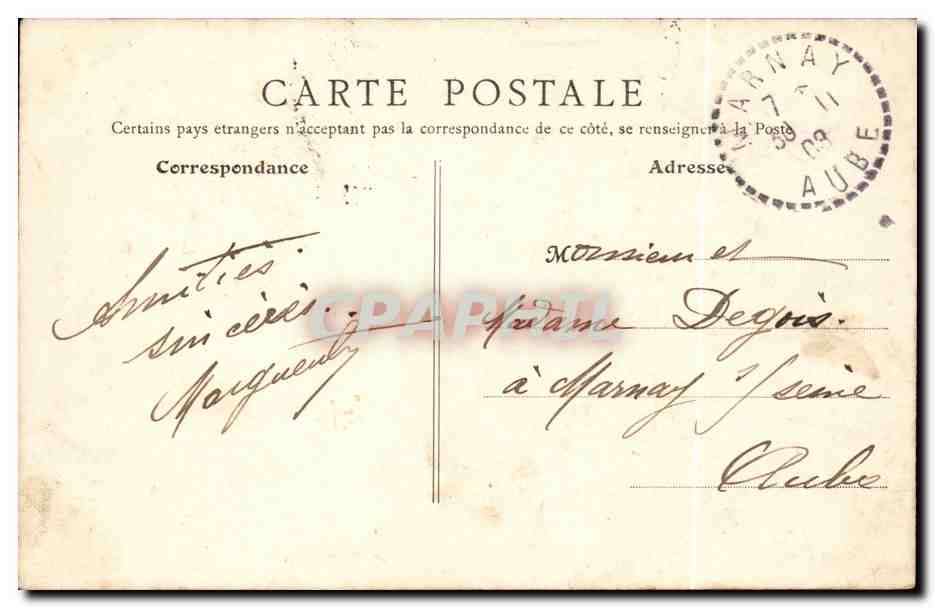 CARTE POSTALE
Certains pays etrangers n'acceptant pas la correspondance de ce côté, se renseigner à la Poste
Correspondance
Adresse
MARNAY
7 11
30 09
AUBE
Amitiés
sincères.
Monsieur et
Madame Degois.
à Marnay s/ seine
Aube
CPAPHIL